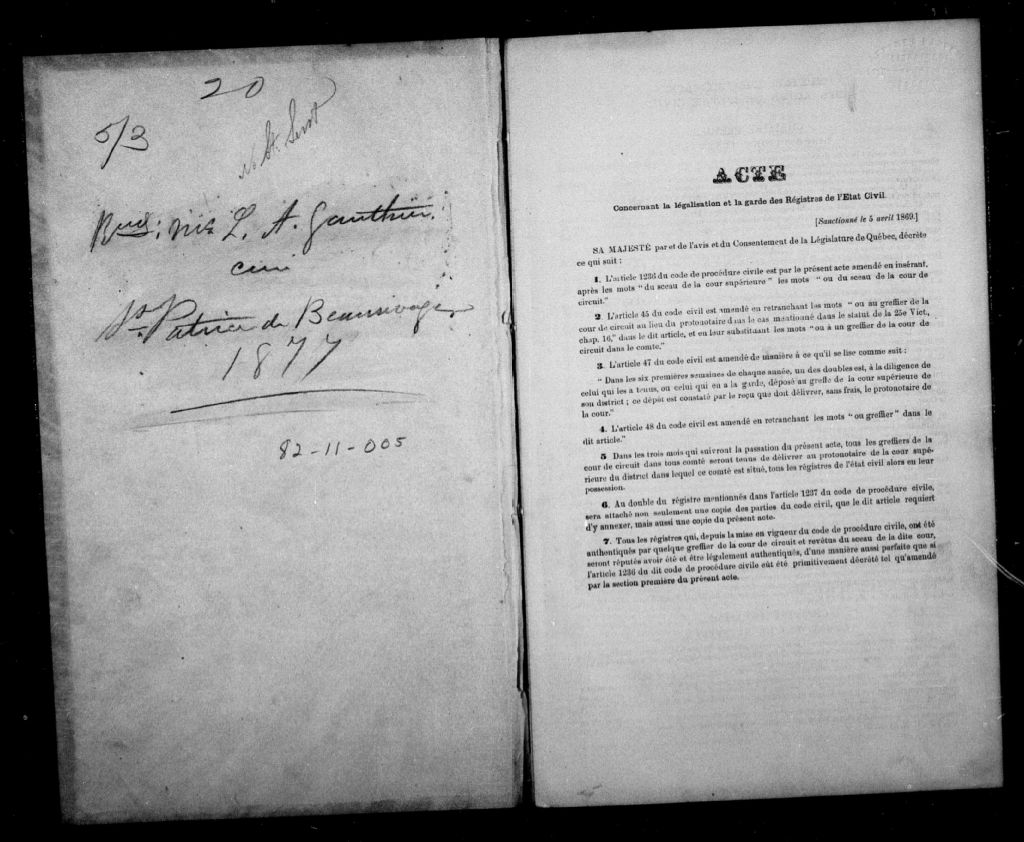 20
5/3
Revd. L. A. Gauthier.
curé
St. Patrice de Beaurivage
1877
82-11-005
ACTE
Concernant la légalisation et la garde des Régistres de l'Etat Civil
[Sanctionné le 5 avril 1869.]
SA MAJESTÉ par et de l'avis et du Consentement de la Législature de Québec, décrète
ce qui suit :
1. L'article 1236 du code de procédure civile est par le présent acte amendé en insérant,
après les mots "du sceau de la cour supérieure" les mots "ou du sceau de la cour de
circuit."
2. L'article 45 du code civil est amendé en retranchant les mots "ou au greffier de la
cour de circuit au lieu du protonotaire dans le cas mentionné dans le statut de la 25e Vict,
chap. 16," dans le dit article, et en leur substituant les mots "ou à un greffier de la cour de
circuit dans le comté."
3. L'article 47 du code civil est amendé de manière à ce qu'il se lise comme suit :
"Dans les six premières semaines de chaque année, un des doubles est, à la diligence de
celui qui les a tenus, ou celui qui en a la garde, déposé au greffe de la cour supérieure de
son district ; ce dépôt est constaté par le reçu que doit délivrer, sans frais, le protonotaire de
la cour."
4. L'article 48 du code civil est amendé en retranchant les mots "ou greffier" dans le
dit article."
5 Dans les trois mois qui suivront la passation du présent acte, tous les greffiers de la
cour de circuit dans tous comté seront tenus de délivrer au protonotaire de la cour supé-
rieure du district dans lequel ce comté est situé, tous les régistres de l'état civil alors en leur
possession.
6. Au double du régistre mentionnés dans l'article 1237 du code de procédure civile,
sera attaché non seulement une copie des parties du code civil, que le dit article requiert
d'y annexer, mais aussi une copie du présent acte.
7. Tous les régistres qui, depuis la mise en vigueur du code de procédure civile, ont été
authentiqués par quelque greffier de la cour de circuit et revêtus du sceau de la dite cour,
seront réputés avoir été et être légalement authentiqués, d'une manière aussi parfaite que si
l'article 1236 du dit code de procédure civile eût été primitivement décrété tel qu'amendé
par la section première du présent acte.